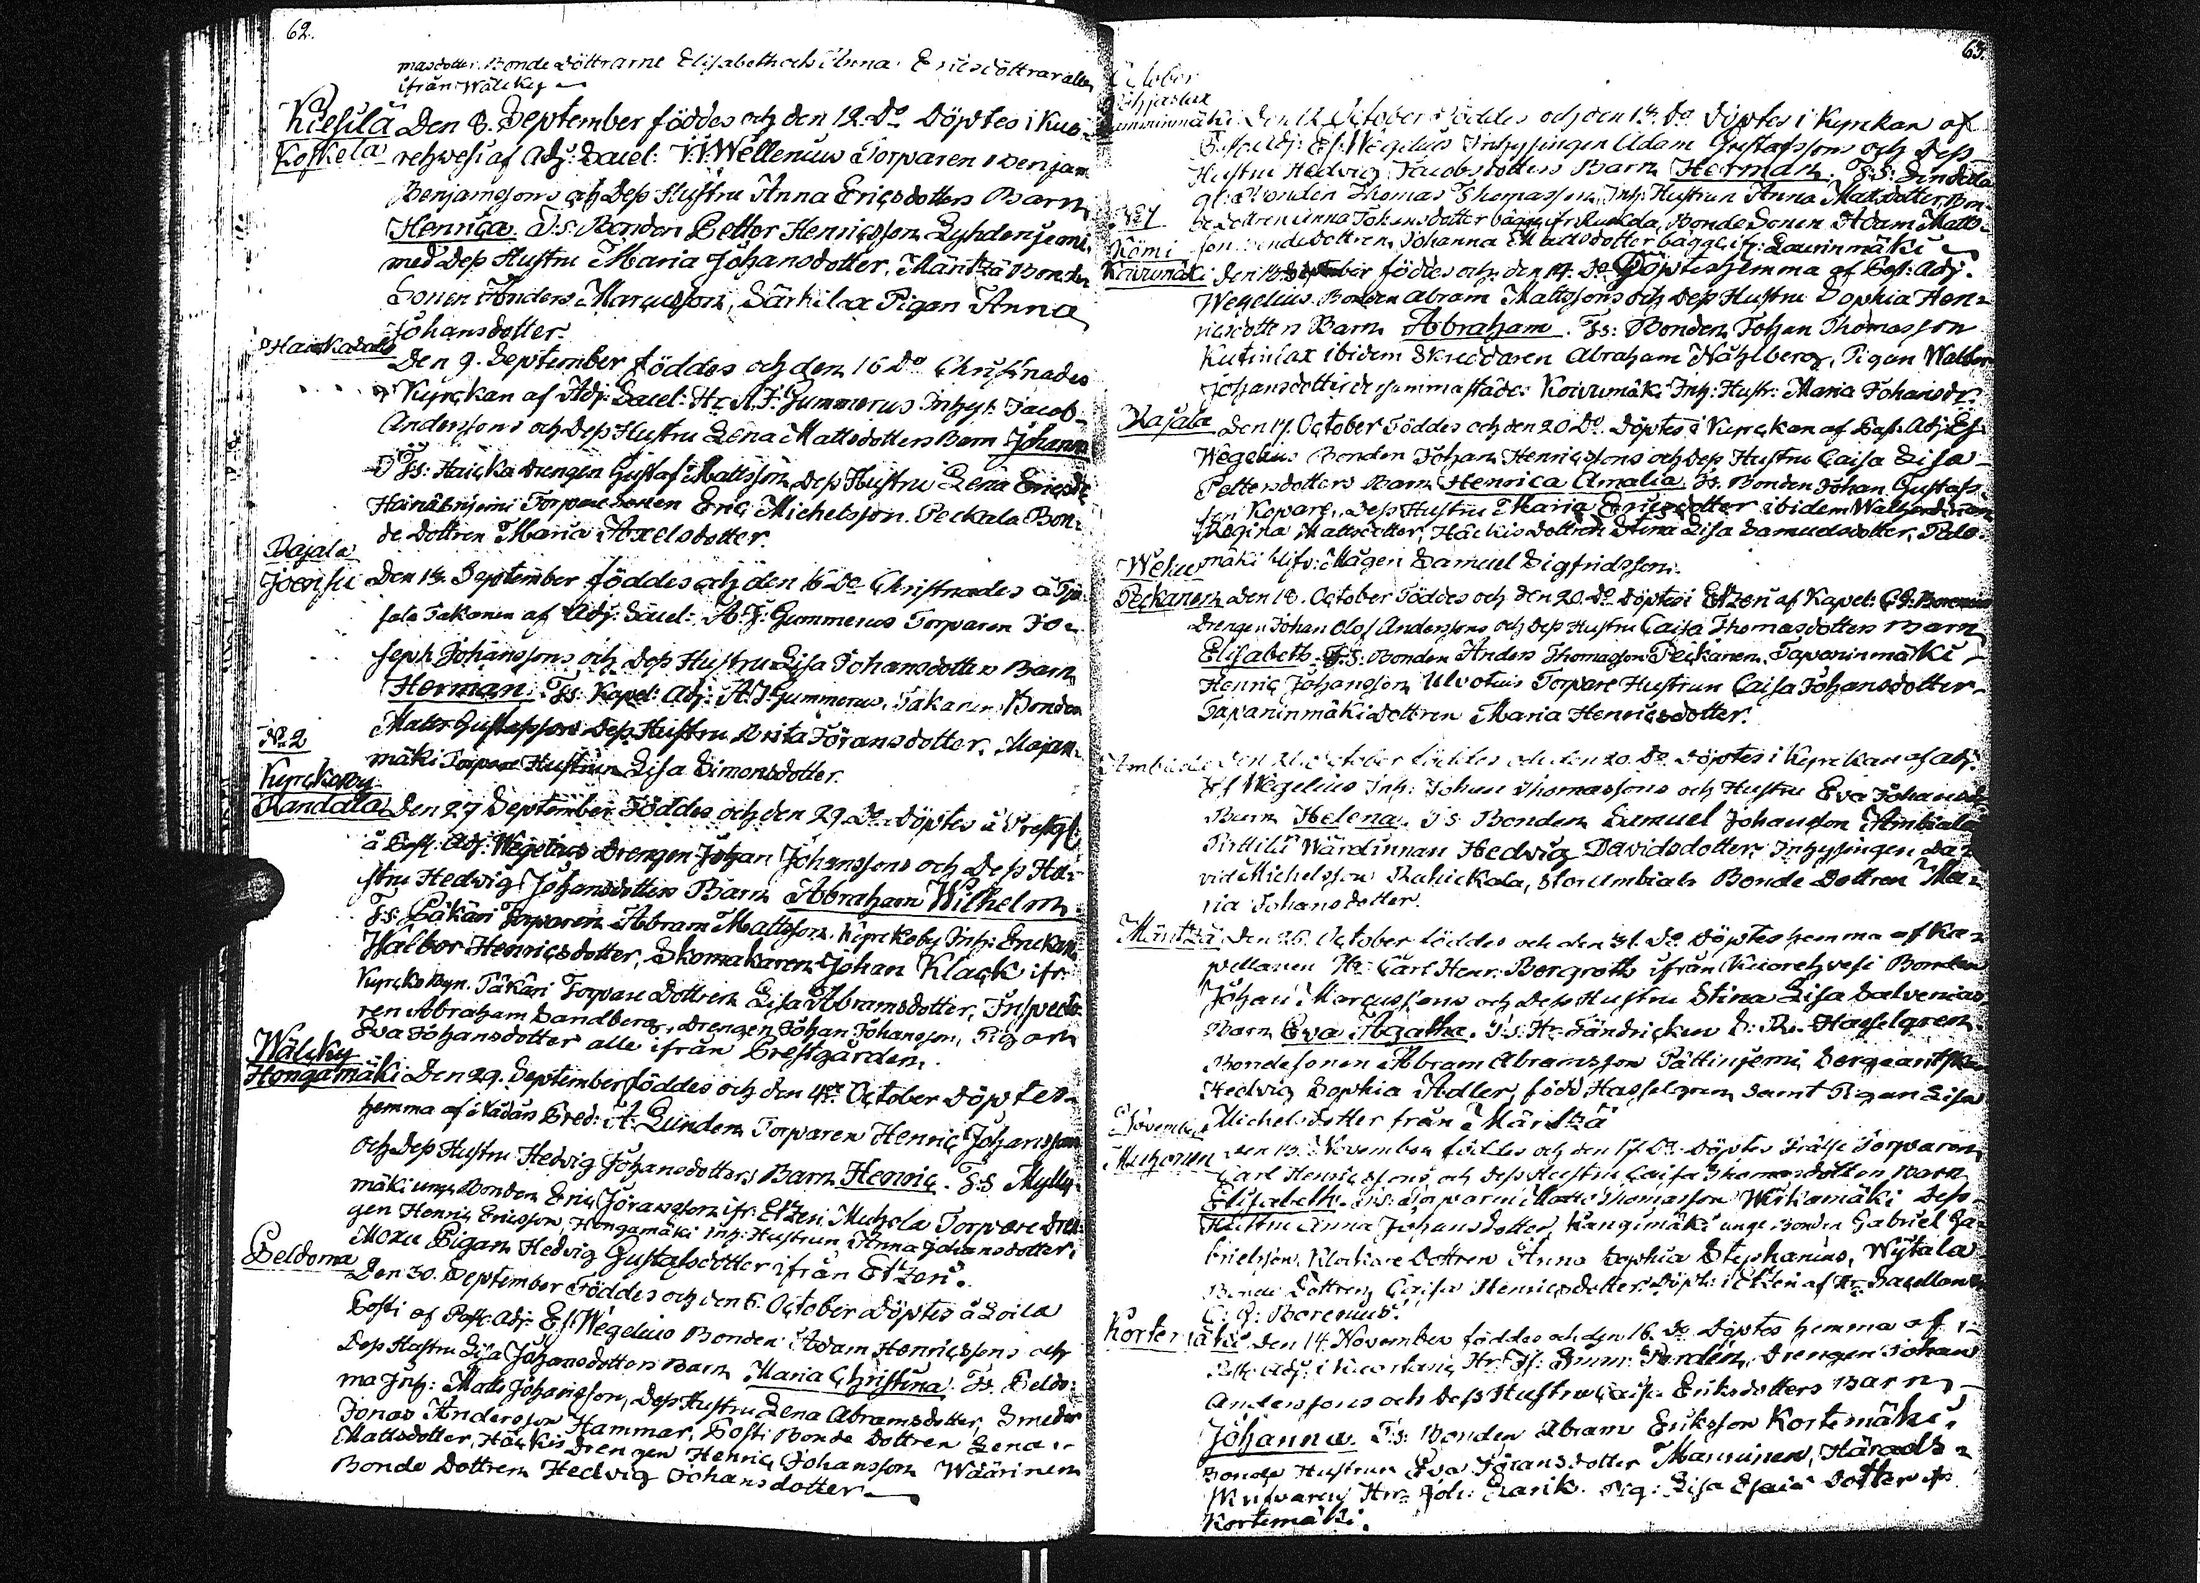 62.
masdotter. Bonde Döttrarne Elisabeth och Anna Ericsdöttrar alla
ifrån Wälcky
Kiesilä Den 8. September föddes och den 12. Do Döptes i Kuo-
Koskela rehvesi af Adj: Sacel: Wellenius Torparen Benjam
Benjamssons och Dess Hustru Anna Ericsdotters Barn
Henrica. T.s: Bonden Petter Henricsson Lyhdenjemi,
med Dess Hustru Maria Johansdotter, Märitzä Bonde
Sonen Anders Marcusson, Särkilax Pigan Anna
Johansdotter.
Den 9. September föddes och den 16 Do Christnades
Kyrckan af Adj: Sacel: Hr A.F. Gummerus Inhys: Jacob
Anderssons och Dess Hustru Lena Mattsdotters Barn Johann
Ts: Haicka Drengen Gustaf Mattsson, Dess Hustru Lena Ericsd:
Torpare Sonen Eric Michelsson. Peckala Bon-
de Dottren Maria Axelsdotter.
Pajala
Joensu Den 14. September föddes och den 16 Do Christnades å
sala Takanen af Adj: Sacel: A.F. Gummerus Torparen Jo-
seph Johanssons och Dess Hustru Lisa Johansdotters Barn
Herman. Ts: Kapel: Adj: A.F. Gummerus, Takanen Bonden
Mats Gustafsson Dess Hustru Brita Göransdotter. Majan-
mäki Torpare Hustrun Lisa Simonsdotter.
No 2
Kyrckoby
Randala Den 27 September Föddes och den 29. Do Döptes i Prestg:
å Past: Adj: Wegelius Drengen Johan Johanssons och Dess Hu-
stru Hedvig Johansdotters Barn Abraham Wilhelm.
Ts: Päkäri Torparen Abram Mattsson. Kyrckoby Inh: Enckan
Walbor Henricsdotter, Skomakaren Johan Klack ifr:
Kyrckobyn. Päkäri Torpare Dottren Lisa Abramsdotter, Inspecto-
ren Abraham Sandberg, Drengen Johan Johansson, Pigan
Eva Johansdotter alle ifrån Prestgården.
Wälcky
Hongamäki Den 29. September föddes och den 4de October Döptes
hemma af Pred: A. Lunden Torparen Henric Johansson
och Dess Hustru Hedvig Johansdotters Barn Henric. T.s. Mylly-
mäki unge Bonden Eric Göransson ifr: Etzeri Muhola Torpare Dren-
gen Henric Ericsson, Hongamäki Inh: Hustrun Anna Johansdotter,
Moxu Pigan Hedvig Gustafsdotter ifrån Etzeri.
Peldoma Den 30. September Föddes och den 6. October Döptes å Loila
Posti af Past: Adj: Es: Wegelius Bonden Adam Henricssons och
Dess Hustru Lisa Johansdotters Barn Maria Christina. Ts. Peldo-
ma Inh: Matts Johansson, Dess Hustru Lena Abramsdotter, Smeden
Jonas Andersson Hammar, Posti Bonde Dottren Lena
Mattsdotter, Häckis Drengen Henric Johansson Wäärinen
Bonde Dottren Hedvig Johansdotter
63.
October
Den 12 October föddes och den 14. Do Döptes i Kyrckan af
Adj: Es: Wegelius Inhysingen Adam Gustafssons och Dess
Hustru Hedvig Jacobsdotters Barn Herman. T.s:
Bonden Thomas Thomasson, Inh: Hustrun Anna Matsdotter, Bon-
de Dottren Anna Johansdotter bägge ifr: Bonde Sonen Adam Matts-
son Bonde dottren Johanna Mattsdotter bägge ifr: Laurinmäki
Kömi
Koivumäki Den föddes och den 14. Do Döptes hemma af Past: Adj:
Wegelius Bonden Abram Mattssons och Dess Hustru Sophia Hen-
ricsdotters Barn Abraham. Ts: Bonden Johan Thomasson
Kutinlax ibidem Skreddaren Abraham Nählberg, Pigan Walbor
Johansdotter dersammastädes Koivumäki Inh: Hustr: Maria Johansdr.
Kajala Den 17. October Föddes och den 20 Do. Döptes i Kyrckan af Past. Adj: Es:
Wegelius Bonden Johan Henricssons och Dess Hustru Caisa Lisa
Pettersdotters Barn Henrica Amalia. Ts. Bonden Johan Gustafs-
son Kopare, Dess Hustru Maria Ericsdotter ibidem Walkerdinan
Regina Mattsdotter, Häckis Dottren Stina Lisa Samuelsdotter, Palo-
mäki Ulfs: Mågen Samuel Sigfridsson.
Wehu
Peckanen Den 18. October Föddes och den 20. Do Döptes i Etzeri af Kapel: C.G: Borenius
Drengen Johan Olof Anderssons och Dess Hustru Caisa Thomasdotters Barn
Elisabeth. T.s: Bonden Anders Thomasson Peckanen, Tapaninmäki
Henric Johansson Ulvotus Torpare Hustrun Caisa Johansdotter
Tapaninmäki Dottren Maria Henricsdotter.
Den October föddes och den 20. Do Döptes i Kyrckan af Adj:
Es: Wegelius Inh: Johan Thomassons och Hustru Eva Johansd:
Barn Helena. T.s: Bonden Samuel Johansson Ambiala
Pirttilä Wärdinnan Hedvig Davidsdotter, Inhysingen Da-
vid Michelsson Stor Ambiala Bonde Dottren Ma-
ria Johansdotter.
Märitzä Den 26. October föddes och den 31. Do Döptes hemma af Ka-
pellanen Hr: Carl Henr: Bergroth ifrån Kuorehvesi Bonden
Johan Marcussons och Dess Hustru Stina Lisa Salvenias
Barn Eva Agatha. T.s: Hr: Fändricken Hasselgren.
Bondesonen Abram Abramsson Pättinjemi Sergeantskan
Hedvig Sophia Adler, född Hasselgren samt Pigan Lisa
Michelsdotter från Märitzä
November
Muhonen Den 13. November föddes och den 17. Do Döptes Frälse Torparen
Carl Henricssons och Dess Hustru Caisa Thomasdotters Barn
Elisabeth. T.s: Torparen Matts Thomasson Wirkamäki Dess
Hustru Anna Johansdotter, Kangimäki unge Bonden Gabriel Ga-
brielsson, Klockare Dottren Anna Sophia Stephanius, Wijtala
Bonde Dottren Caisa Henricsdotter. Döpt: i Etzeri af Hr: Sacellanen
C: G: Borenius.
Kortemäki Den 14. November föddes och den 16. Do Döptes hemma af
Adj: i Hr: Drengen Johan
Anderssons och Dess Hustru Caisa Eriksdotters Barn
Johanna. T:s: Bonden Abram Eriksson Kortemäki.
Bonde Hustrun Eva Göransdotter Manninen, Härads-
Hr: Joh: Pig: Lisa Esaiædotter ifr:
Kortemäki.